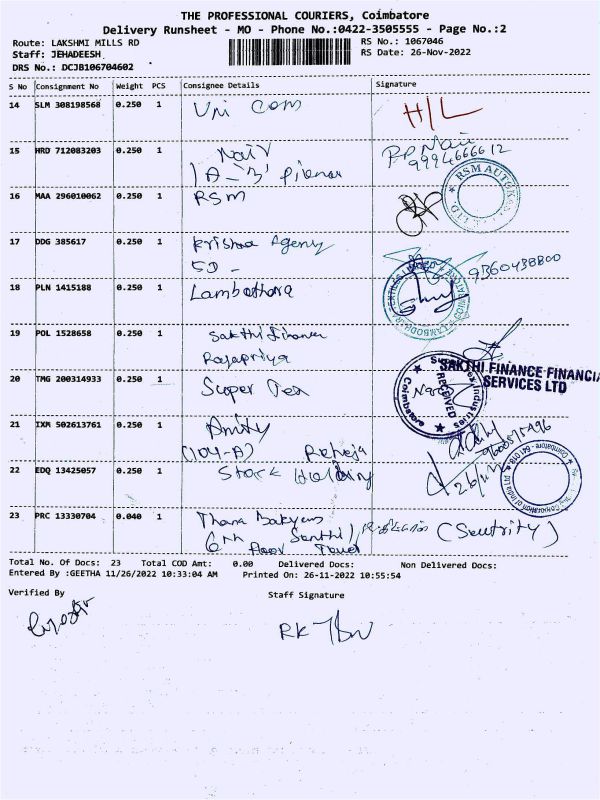 THE PROFESSIONAL COURIERS, Coimbatore
Delivery Runsheet - MO - Phone No.:0422-3505555 - Page No.:2
Route: LAKSHMI MILLS RD
Staff: JEHADEESH
DRS No.: DCJB106704602
RS No.: 1067046
RS Date: 26-Nov-2022
S No Consignment No Weight PCS Consignee Details Signature
14 SLM 308198568 0.250 1 Uni Com H/L
15 HRD 712083203 0.250 1 Nair
9994666612
16 MAA 296010062 0.250 1 RSM
RSM AUTOKAST
17 DDG 385617 0.250 1 Krishna Agency
5D -
9360438800
18 PLN 1415188 0.250 1 Lambothara
19 POL 1528658 0.250 1 Sakthi Finance
Rajapriya
SAKTHI FINANCE FINANCIA
SERVICES LTD
20 TMG 200314933 0.250 1 Super Tex
RECEIVED
Coimbatore
21 IXM 502613761 0.250 1 Amity
(104-A) Raheja
22 EDQ 13425057 0.250 1 Stock Holding
23 PRC 13330704 0.040 1 Thana
6th Floor Tower
Total No. Of Docs: 23 Total COD Amt: 0.00 Delivered Docs: Non Delivered Docs:
Entered By :GEETHA 11/26/2022 10:33:04 AM Printed On: 26-11-2022 10:55:54
Verified By Staff Signature